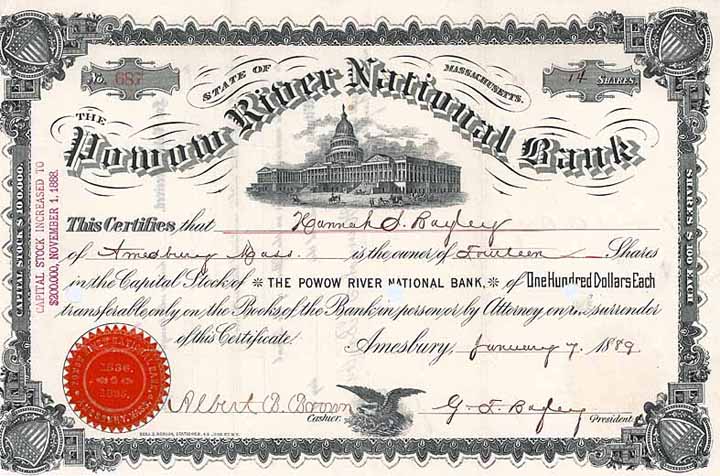 No. 687
STATE OF MASSACHUSETTS.
14 SHARES
THE
Powow River National Bank
This Certifies that Hannah S. Bagley
of Amesbury Mass. is the owner of Fourteen Shares
in the Capital Stock of * THE POWOW RIVER NATIONAL BANK, * of One Hundred Dollars Each
transferable only on the Books of the Bank in person or by Attorney on the surrender
of this Certificate.
Amesbury, January 7, 1889
Albert D. Brown
Cashier.
G. F. Bagley
President
CAPITAL STOCK $100,000.
CAPITAL STOCK INCREASED TO
$200,000, NOVEMBER 1, 1888.
SHARES $100 EACH
1836.